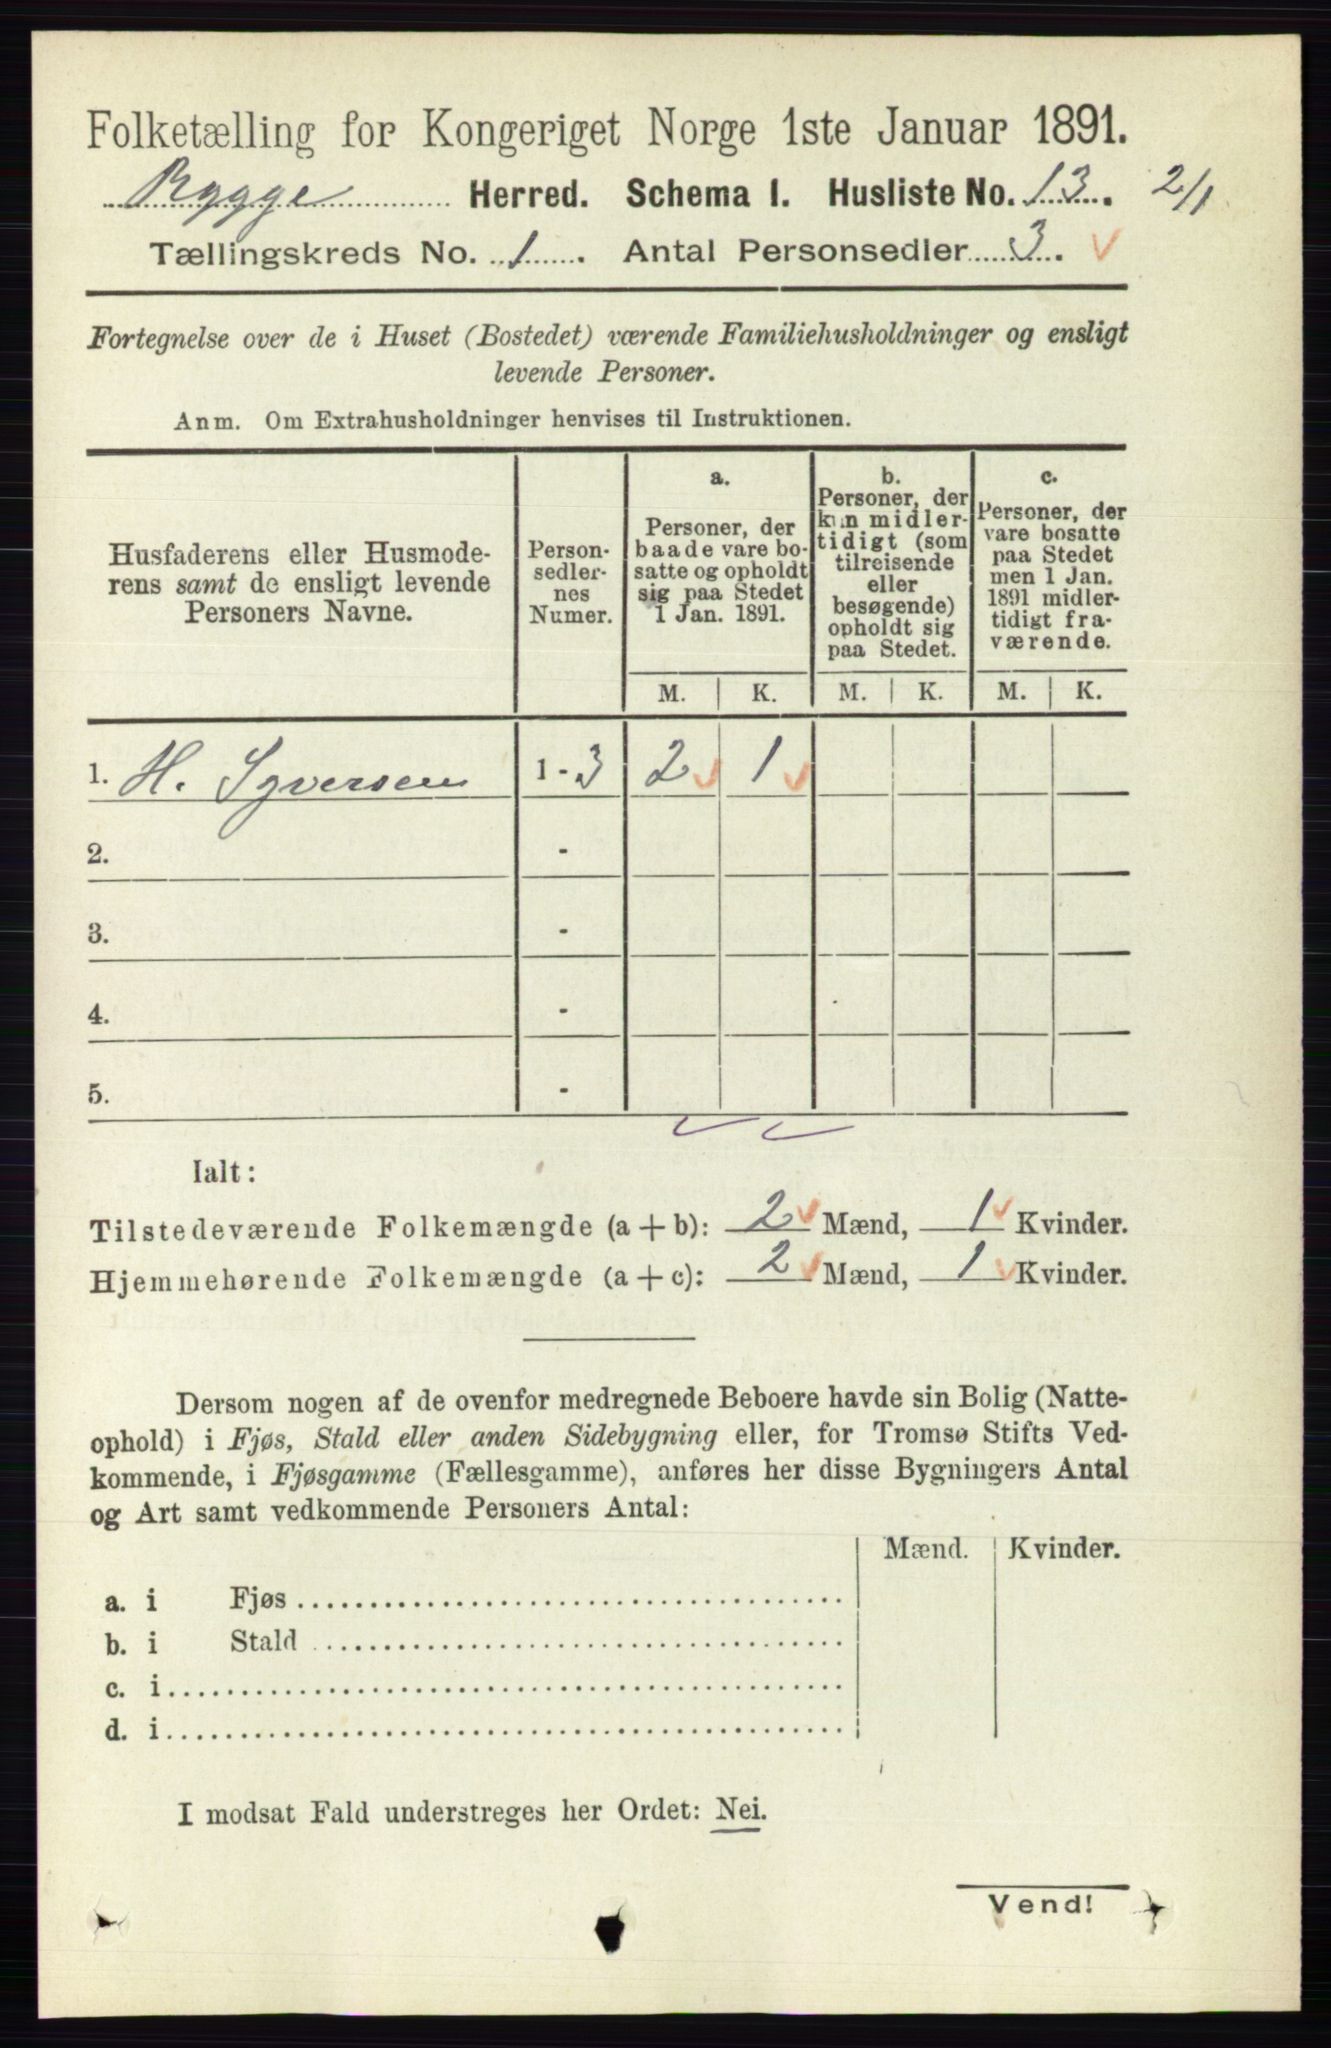 Folketælling for Kongeriget Norge 1ste Januar 1891.
Rygge Herred. Schema I. Husliste No. 13. 2/1
Tællingskreds No. 1. Antal Personsedler 3.
Fortegnelse over de i Huset (Bostedet) værende Familiehusholdninger og ensligt
levende Personer.
Anm. Om Extrahusholdninger henvises til Instruktionen.
Husfaderens eller Husmode-
rens samt de ensligt levende
Personers Navne.
Person-
sedler-
nes
Numer.
a.
Personer, der
baade vare bo-
satte og opholdt
sig paa Stedet
1 Jan. 1891.
b.
Personer, der
kun midler-
tidigt (som
tilreisende
eller
besøgende)
opholdt sig
paa Stedet.
c.
Personer, der
vare bosatte
paa Stedet
men 1 Jan.
1891 midler-
tidigt fra-
værende.
M. K. M. K. M. K.
1. H. Syversen 1-3 2 1
2. -
3. -
4. -
5. -
Ialt:
Tilstedeværende Folkemængde (a + b): 2 Mænd, 1 Kvinder.
Hjemmehørende Folkemængde (a + c): 2 Mænd, 1 Kvinder.
Dersom nogen af de ovenfor medregnede Beboere havde sin Bolig (Natte-
ophold) i Fjøs, Stald eller anden Sidebygning eller, for Tromsø Stifts Ved-
kommende, i Fjøsgamme (Fællesgamme), anføres her disse Bygningers Antal
og Art samt vedkommende Personers Antal:
Mænd. Kvinder.
a. i Fjøs
b. i Stald
c. i
d. i
I modsat Fald understreges her Ordet: Nei.
Vend!